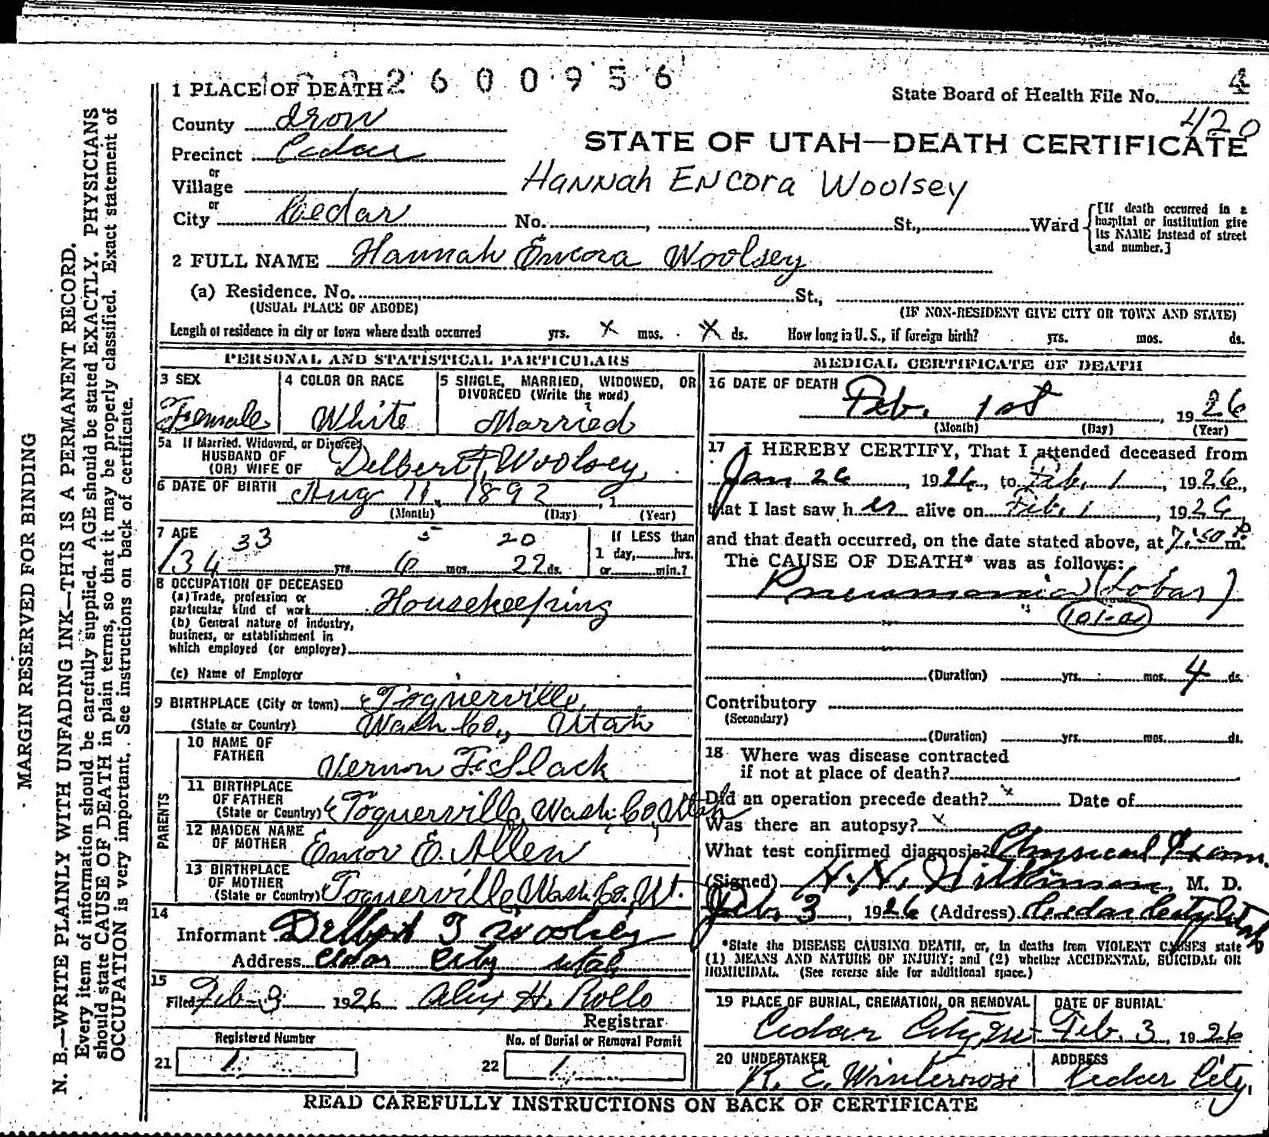 2600956
4
1 PLACE OF DEATH
State Board of Health File No.
420
County Iron
STATE OF UTAH—DEATH CERTIFICATE
Precinct Cedar
or
Village
HANNAH ENCORA WOOLSEY
or
City Cedar No. St., Ward
[If death occurred in a
hospital or institution give
its NAME instead of street
and number.]
2 FULL NAME Hannah Encora Woolsey
(a) Residence. No. St.,
(USUAL PLACE OF ABODE) (IF NON-RESIDENT GIVE CITY OR TOWN AND STATE)
Length of residence in city or town where death occurred yrs. X mos. X ds. How long in U.S., if foreign birth? yrs. mos. ds.
PERSONAL AND STATISTICAL PARTICULARS
3 SEX
Female
4 COLOR OR RACE
White
5 SINGLE, MARRIED, WIDOWED, OR
DIVORCED (Write the word)
Married
5a If Married, Widowed, or Divorced
HUSBAND OF
(OR) WIFE OF Delbert T. Woolsey
6 DATE OF BIRTH Aug 11, 1892, 1
(Month) (Day) (Year)
7 AGE 33 5 20
34 yrs. 6 mos. 22 ds.
If LESS than
1 day, hrs.
or min.?
8 OCCUPATION OF DECEASED
(a) Trade, profession or
particular kind of work Housekeeping
(b) General nature of industry,
business, or establishment in
which employed (or employer)
(c) Name of Employer
9 BIRTHPLACE (City or town) Toquerville,
(State or Country) Wash Co., Utah
PARENTS
10 NAME OF
FATHER
Vernon F. Slack
11 BIRTHPLACE
OF FATHER
(State or Country) Toquerville, Wash. Co, Utah
12 MAIDEN NAME
OF MOTHER
E. Allen
13 BIRTHPLACE
OF MOTHER
(State or Country) Toquerville Wash. Co. Ut.
14
Informant Delbert T Woolsey
Address Cedar City Utah
15
Filed Feb-3 1926 Alex H. Rollo
Registrar
Registered Number
21 1
No. of Burial or Removal Permit
22 1
MEDICAL CERTIFICATE OF DEATH
16 DATE OF DEATH
Feb. 1st 1926
(Month) (Day) (Year)
17 I HEREBY CERTIFY, That I attended deceased from
Jan 26, 1926, to Feb. 1, 1926,
that I last saw her alive on Feb. 1, 1926,
and that death occurred, on the date stated above, at 7:50 m.
The CAUSE OF DEATH* was as follows:
Pneumonia (Lobar)
101-a
(Duration) yrs. mos. 4 ds.
Contributory
(Secondary)
(Duration) yrs. mos. ds.
18 Where was disease contracted
if not at place of death?
Did an operation precede death? x Date of
Was there an autopsy? x
What test confirmed diagnosis? Physical Exam.
(Signed) Wilkinson, M. D.
Feb. 3, 1926 (Address) Cedar City Utah
*State the DISEASE CAUSING DEATH, or, in deaths from VIOLENT CAUSES state
(1) MEANS AND NATURE OF INJURY; and (2) whether ACCIDENTAL, SUICIDAL OR
HOMICIDAL. (See reverse side for additional space.)
19 PLACE OF BURIAL, CREMATION, OR REMOVAL
Cedar City,
DATE OF BURIAL
Feb. 3, 1926
20 UNDERTAKER
R. E. Winterrose
ADDRESS
Cedar City.
READ CAREFULLY INSTRUCTIONS ON BACK OF CERTIFICATE
MARGIN RESERVED FOR BINDING
N. B.—WRITE PLAINLY WITH UNFADING INK—THIS IS A PERMANENT RECORD.
Every item of information should be carefully supplied. AGE should be stated EXACTLY. PHYSICIANS
should state CAUSE OF DEATH in plain terms, so that it may be properly classified. Exact statement of
OCCUPATION is very important. See instructions on back of certificate.